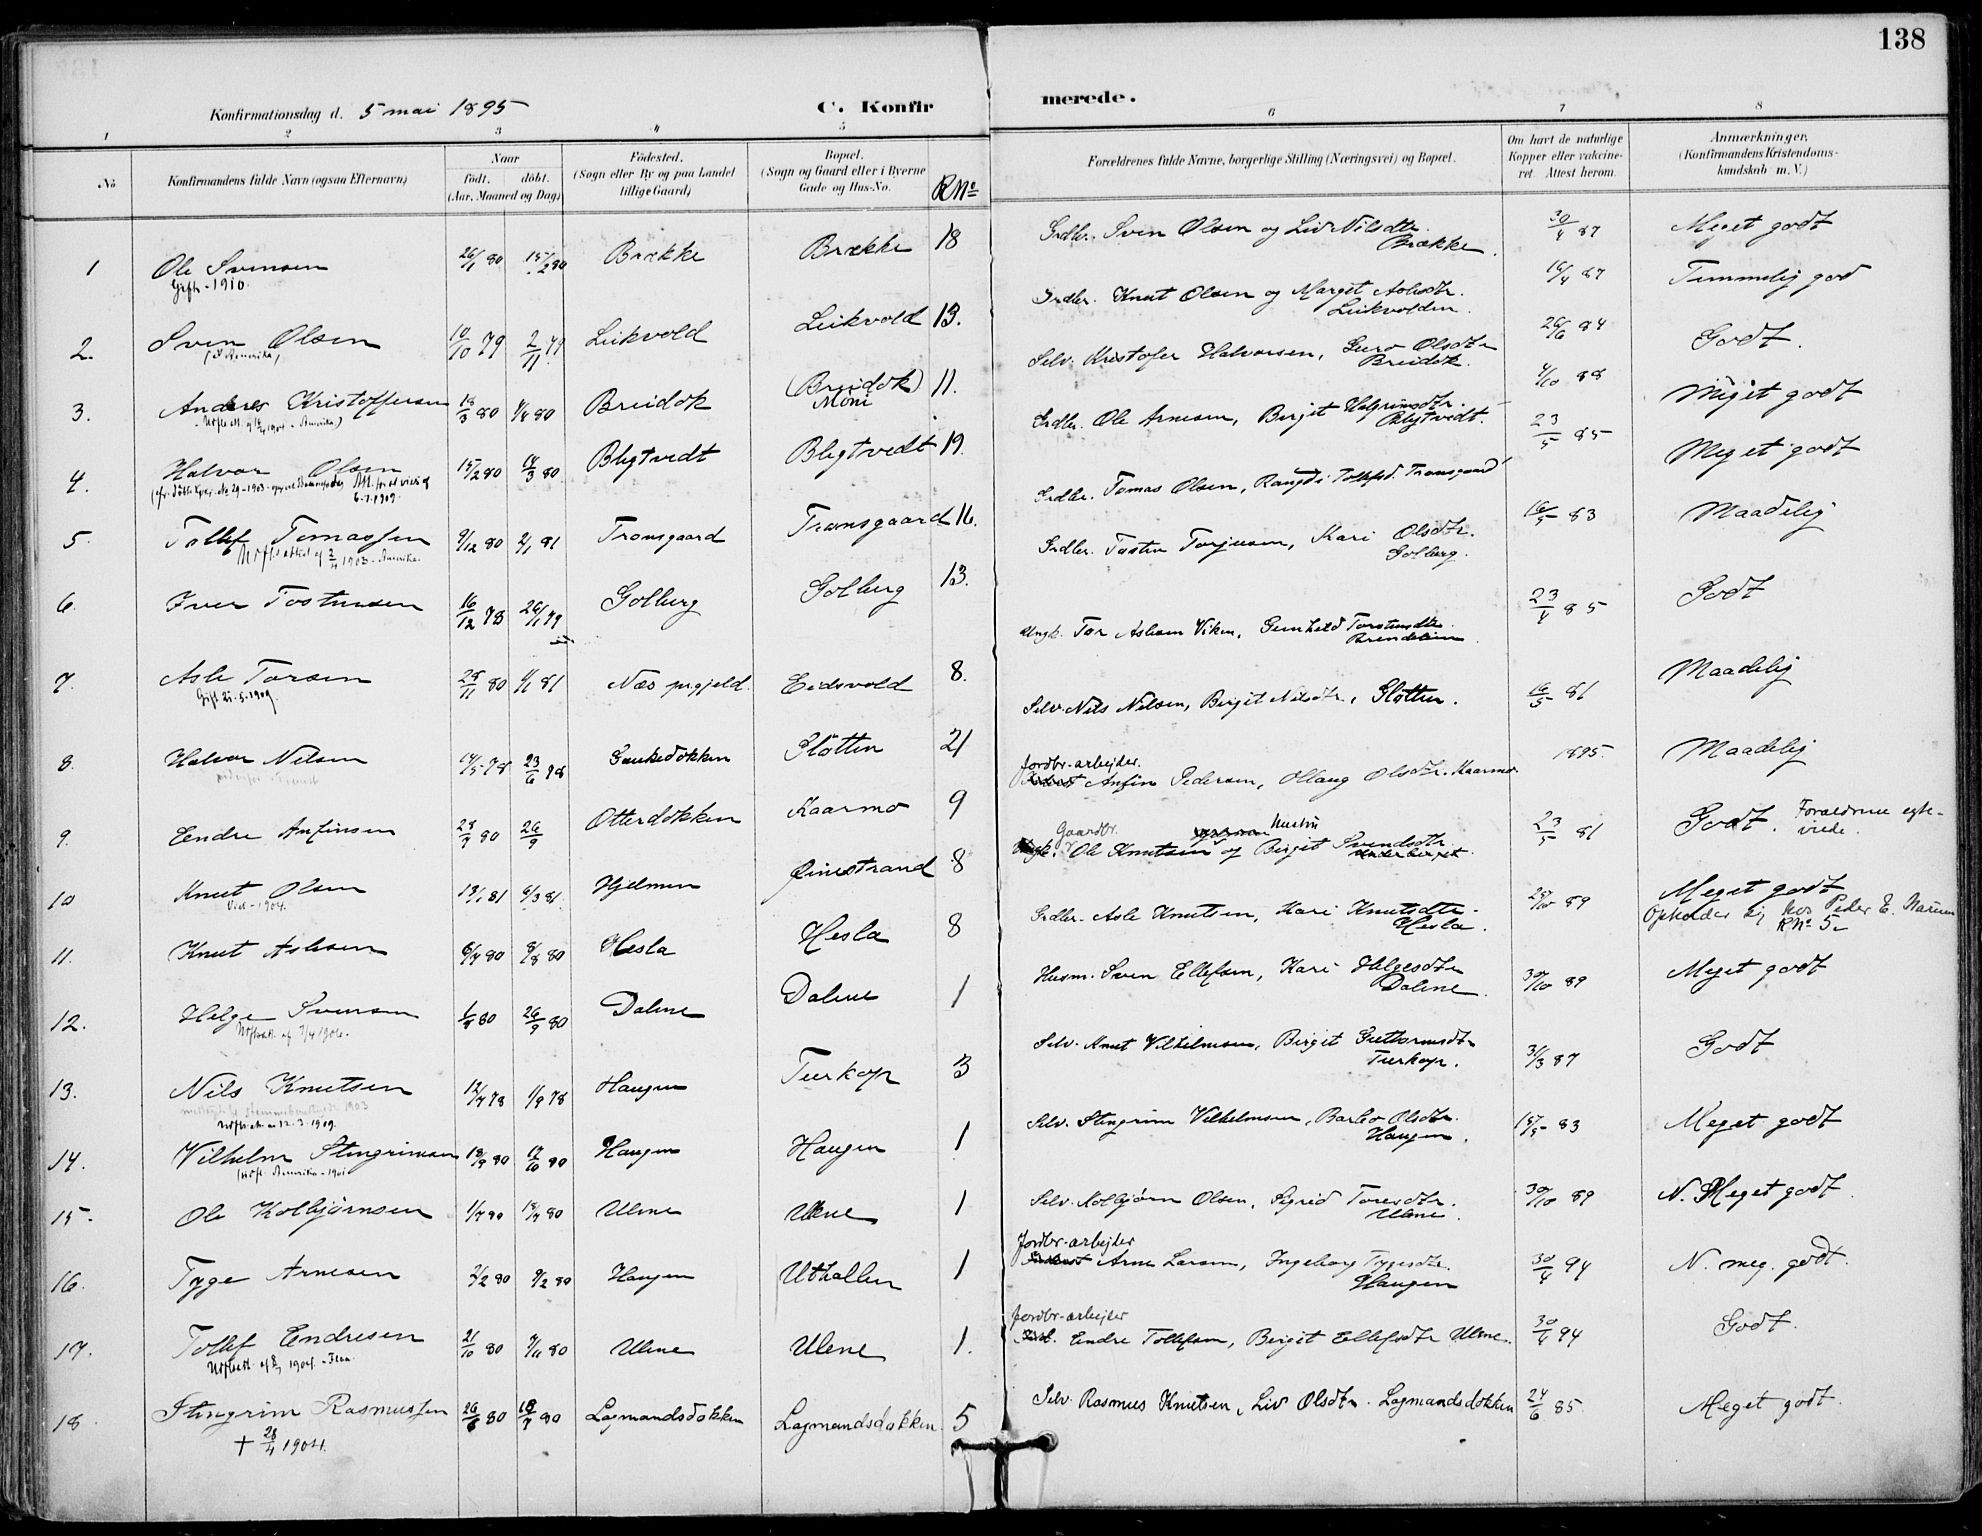 138
Konfirmationsdag d. 5 mai 1895
C. Konfirmerede.
1 2 3 4 5 6 7 8
No
Konfirmandens fulde Navn (ogsaa Efternavn)
Naar
født. døbt.
(Aar, Maaned og Dag)
Fødested.
(Sogn eller By og paa Landet tillige Gaard)
Bopæl.
(Sogn og Gaard eller i Byerne Gade og Hus-No.
RNo
Forældrenes fulde Navne, borgerlige Stilling (Næringsvei) og Bopæl.
Om havt de naturlige Kopper eller vakcineret. Attest herom.
Anmærkninger.
(Konfirmandens Kristendomskundskab m. V.)
1 Ole Svensen 26/1 80 15/2 80 Brække Brække 18 Grdbr. Sven Olsen og Liv Nilsdtr. Brække. 30/4 87 Meget godt
Gift - 1910.
2. Sven Olsen 10/10 79 2/11 79 Leikvold Leikvold 13. Grdbr. Knut Olsen og Marget Aslesdtr. Leikvolden. 16/4 87 Temmelig god
(i Amerika)
3. Anders Kristoffersen 18/3 80 4/4 80 Breidok (Breidok) Moni 11. Selv. Kristofer Halvorsen, Guro Olsdtr Breidok. 26/6 84 Godt.
1904 - Amerika)
4. Halvor Olsen 15/2 80 14/3 80 Blygtvedt Blygtvedt 19. Grdbr. Ole Arnesen, Birgit Halgrimsdtr. Blygtvedt. 4/10 88 Meget godt
6.7.1909.
5. Tollef Tomassen 9/12 80 2/1 81 Tronsgaard Tronsgaard 16. Grdbr. Tomas Olsen, Rangdi Tollefsd. Tronsgaard 23/5 85 Meget godt
1903 - Amerika.
6. Iver Tostensen 16/12 78 26/1 79 Golberg Golberg 13. Grdbr. Tosten Torjusen, Kari Olsdtr. Golberg. 16/5 83 Maadelig
7. Asle Torsen 28/11 80 1/1 81 Næs prgjeld. Eidsvold 8. Ungk. Tor Aslesen Viken, Gunhild Torstensdtr. 23/4 85 Godt
Gift 23.5.1909.
8. Halvor Nilsen 14/5 78 23/6 78 Gaukedokken Sløtten 21 Selv. Nils Nilsen, Birgit Nilsdtr., Sløtten. 16/5 81 Maadelig
9. Eendre Anfinsen 28/7 80 26/9 Otterdokken Kaarmo 9 Jordbr-arbejder. Anfin Pedersen, Ollaug Olsdtr. Kaarmo. 1895. Maadelig
10 Knut Olsen 13/1 81 6/3 81. Hjelmen Finestrand 8 Gaardbr. Ole Knutsen og Hustru Birgit Svendsdtr. 23/5 81 Godt. Forældrene egteviede.
Viet - 1904.
11. Knut Aslesen 6/7 80 8/8 80 Hesla Hesla 8 Grdbr. Asle Knutsen, Kari Knutsdtr. Hesla. 28/10 89 Meget godt
Opholder sig hos Peder E. RNo 5
12. Helge Svensen 1/8 80 26/9 80 Dalene Dalene 1 Husm. Sven Ellefsen, Kari Helgesdtr Dalene. 30/10 89 Meget godt
7/4 1906.
13. Nils Knutsen 12/7 78 1/9 78 Haugen Turkop 3 Selv. Knut Vilhelmsen, Birgit Guttormsdtr Turkop. 31/3 87 Godt
1903
12.3.1909.
14. Vilhelm Stengrimsen 18/9 80 17/10 80 Haugen Haugen 1 Selv. Stengrim Vilhelmsen, Barbro Olsdtr. Haugen. 15/5 83 Meget godt
Amerika - 1901
15. Ole Kolbjørnsen 1/7 80 18/7 80 Ulene Ulene 1 Selv. Kolbjørn Olsen, Sigrid Toresdtr. Ulene. 30/10 89 N. Meget godt.
16. Tyge Arnesen 2/2 80 9/2 80 Haugen Uthallen 1 Jordbr-arbejder Arne Larsen, Ingeborg Tygesdtr. Haugen 30/4 94 N. meg. godt.
17. Tollef Endresen 21/10 80 7/11 80 Ulene Ulene 1. Jordbr-arbejder Endre Tollefsen, Birgit Ellefsdtr Ulene. 30/4 94 Godt.
1904.
18 Stengrim Rasmussen 26/6 80 18/7 80 Lagmandsdokken Lagmandsdokken. 5 Selv. Rasmus Knutsen, Liv Olsdtr. Lagmandsdokken 24/6 85. Meget godt.
† 28/4 1904.